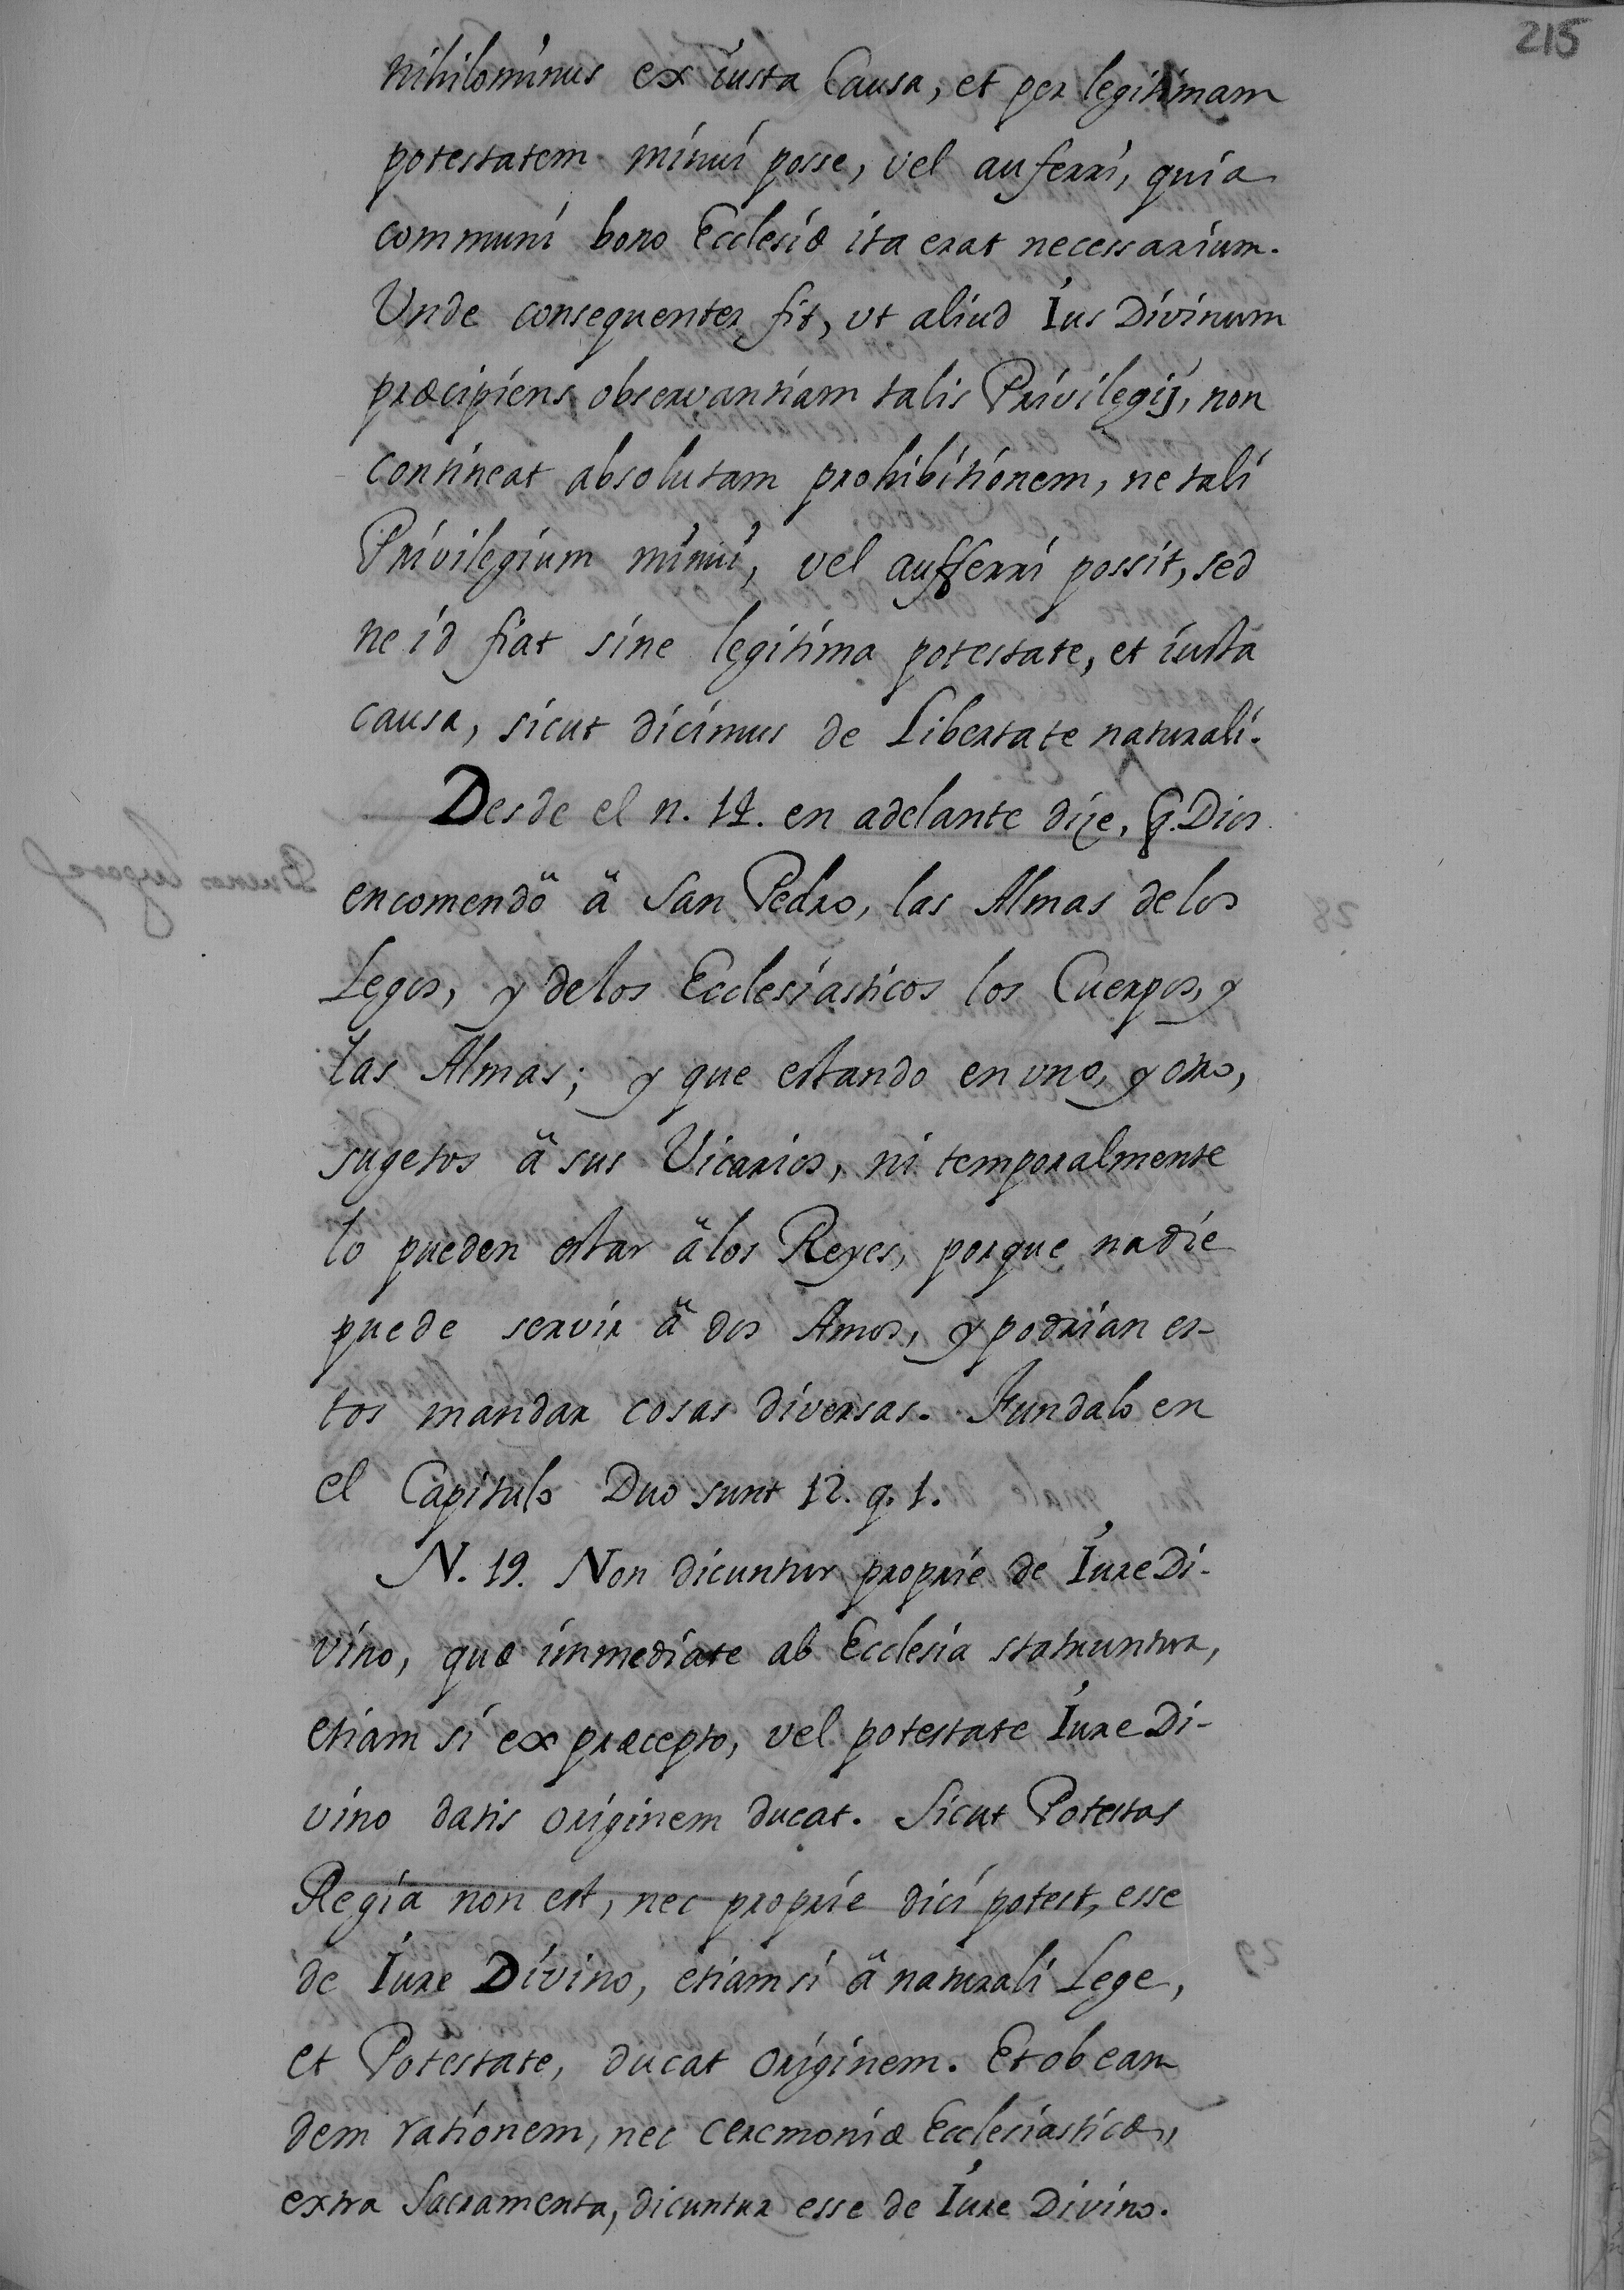 215
nihilominus ex iusta Causa, et per legitimam
potestatem minui posse, vel auferri, quia
communi bono Ecclesiæ ita erat necessarium.
Unde consequenter fit, ut aliud Ius Divinum
præcipiens observantiam talis Privilegij, non
contineat absolutam prohibitionem, ne tali
Privilegium minui, vel aufferri possit, sed
ne id fiat sine legitima potestate, et iusta
causa, sicut dicimus de Libertate naturali.
Desde el n. 14. en adelante dize, q. Dios
encomendö ä San Pedro, las Almas de los
Legos, y de los Ecclesiasticos los Cuerpos, y
las Almas; y que estando en uno, y otro,
sugetos ä sus Vicarios, ni temporalmente
lo pueden estar ä los Reyes, porque nadie
puede servir ä dos Amos, y podrian es-
tos mandar cosas diversas. Fundalo en
el Capitulo Duo sunt 12. q. 1.
N. 19. Non dicuntur proprie de Iure Di-
vino, quæ immediate ab Ecclesia statuuntur,
etiam si ex præcepto, vel potestate Iure Di-
vino datis originem ducat. Sicut Potestas
Regia non est, nec proprie dici potest, esse
de Iure Divino, etiam si ä naturali Lege,
et Potestate, ducat originem. Et ob ean
dem rationem, nec ceremoniæ Ecclesiasticæ,
extra Sacramenta, dicuntur esse de Iure Divino.